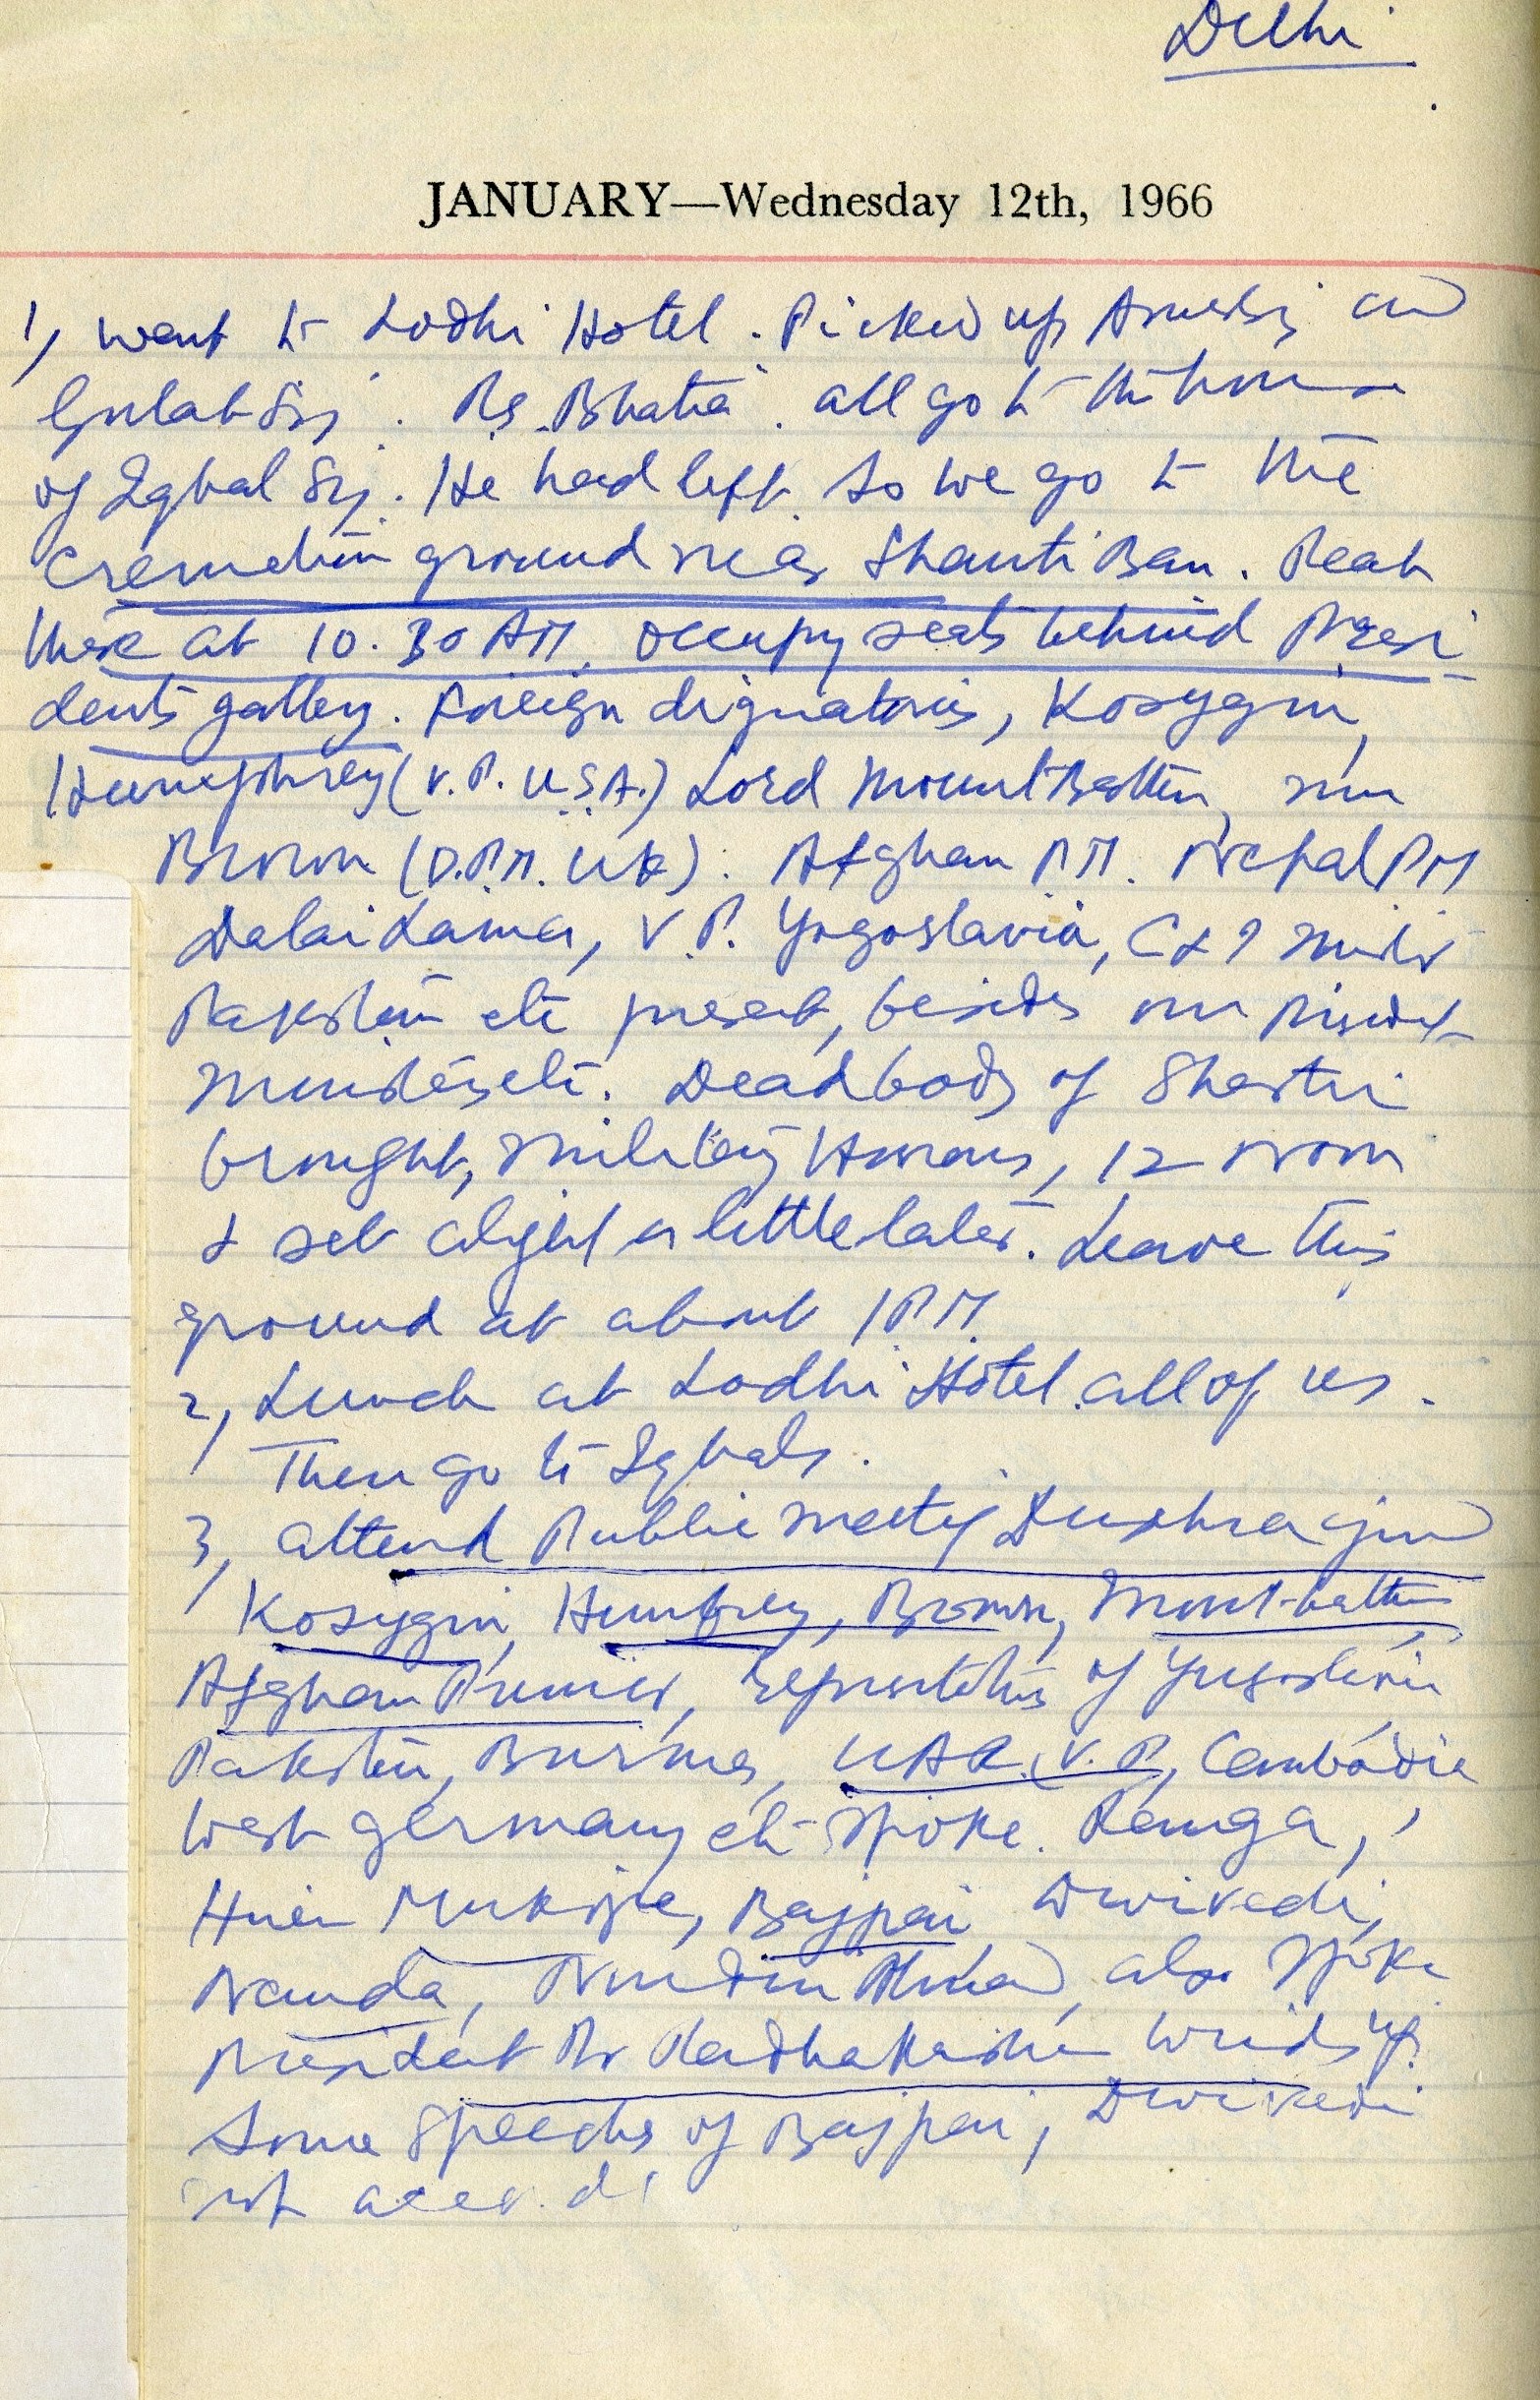 Delhi
JANUARY—Wednesday 12th, 1966
1, went to Lodhi Hotel. Picked up and
Gulab Sij. Bhatia. all go to the house
of Iqbal Sij. He had left. So we go to the
cremation ground near Shanti Ban. Reach
there at 10.30 AM. occupy seats behind Presi-
dents gallery. Foreign dignatories, Kosygin,
Humephrey (V.P. U.S.A.) Lord MountBatten,
Brown (D.P.M. UK). Afghan P.M. Nepal PM
Dalai Lama, V.P. Yogoslavia,
Pakistan etc present, besides our President
Ministers etc. Dead body of Shastri
brought, Military Honours, 12 Noon
& set alight a little later. Leave this
ground at about 1 PM.
2, Lunch at Lodhi Hotel. all of us.
Then go to Iqbals.
3, attend Public meeting
Kosygin, Humfrey, Brown, Mount-batten
Afghan Premier, representatives of Yugoslavia
Pakistan, Burma, UAR (V.P, Cambodia
West Germany etc spoke. Ranga,
Hiren Mukerjee, Bajpai Dwivedi,
Nanda, also spoke
President Dr Radhakrishan winds up.
Some Speechs of Bajpai, Dwivedi
not